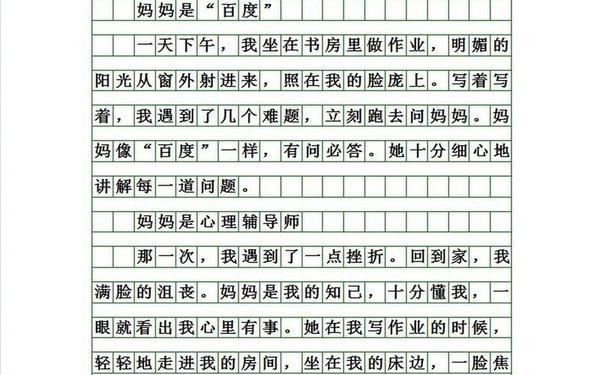 妈妈是“百度”
一天下午，我坐在书房里做作业，明媚的
阳光从窗外射进来，照在我的脸庞上。写着写
着，我遇到了几个难题，立刻跑去问妈妈。妈
妈像“百度”一样，有问必答。她十分细心地
讲解每一道问题。
妈妈是心理辅导师
那一次，我遇到了一点挫折。回到家，我
满脸的沮丧。妈妈是我的知己，十分懂我，一
眼就看出我心里有事。她在我写作业的时候，
轻轻地走进我的房间，坐在我的床边，一脸焦